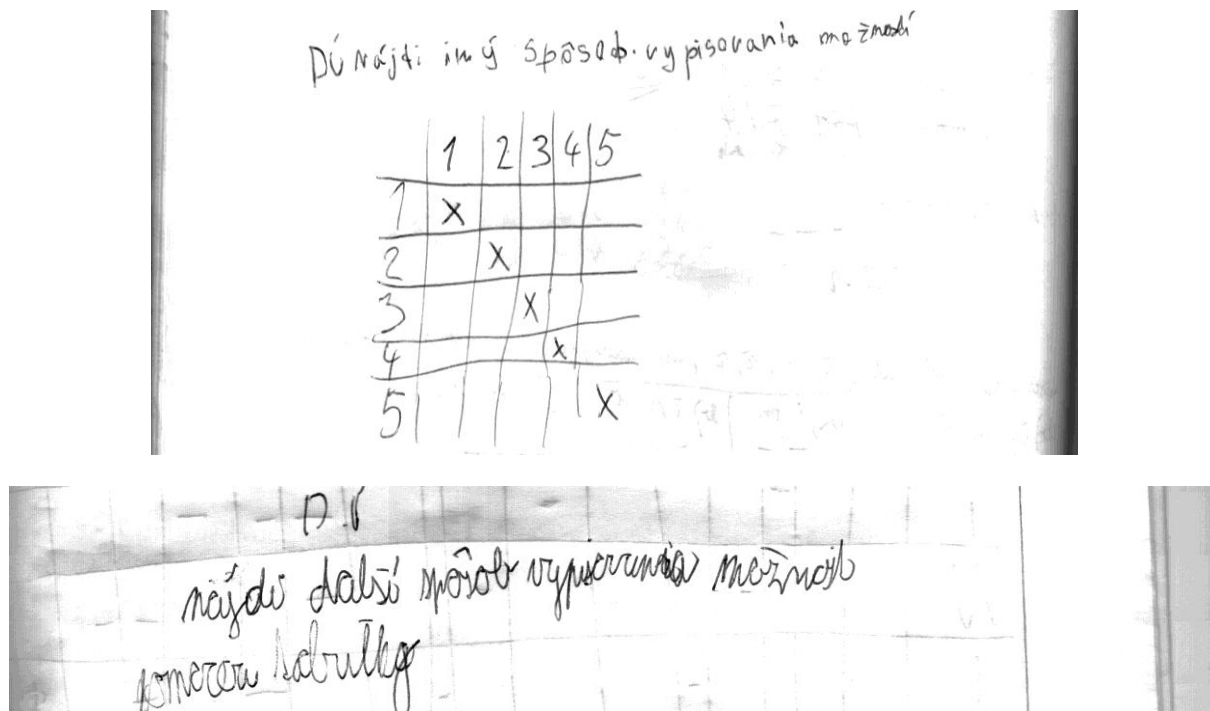 DÚ Nájdi iný spôsob vypisovania možností
1 2 3 4 5
1 X
2 X
3 X
4 X
5 X
D.Ú
nájdi ďalší spôsob vypisovania možností
pomocou tabuľky